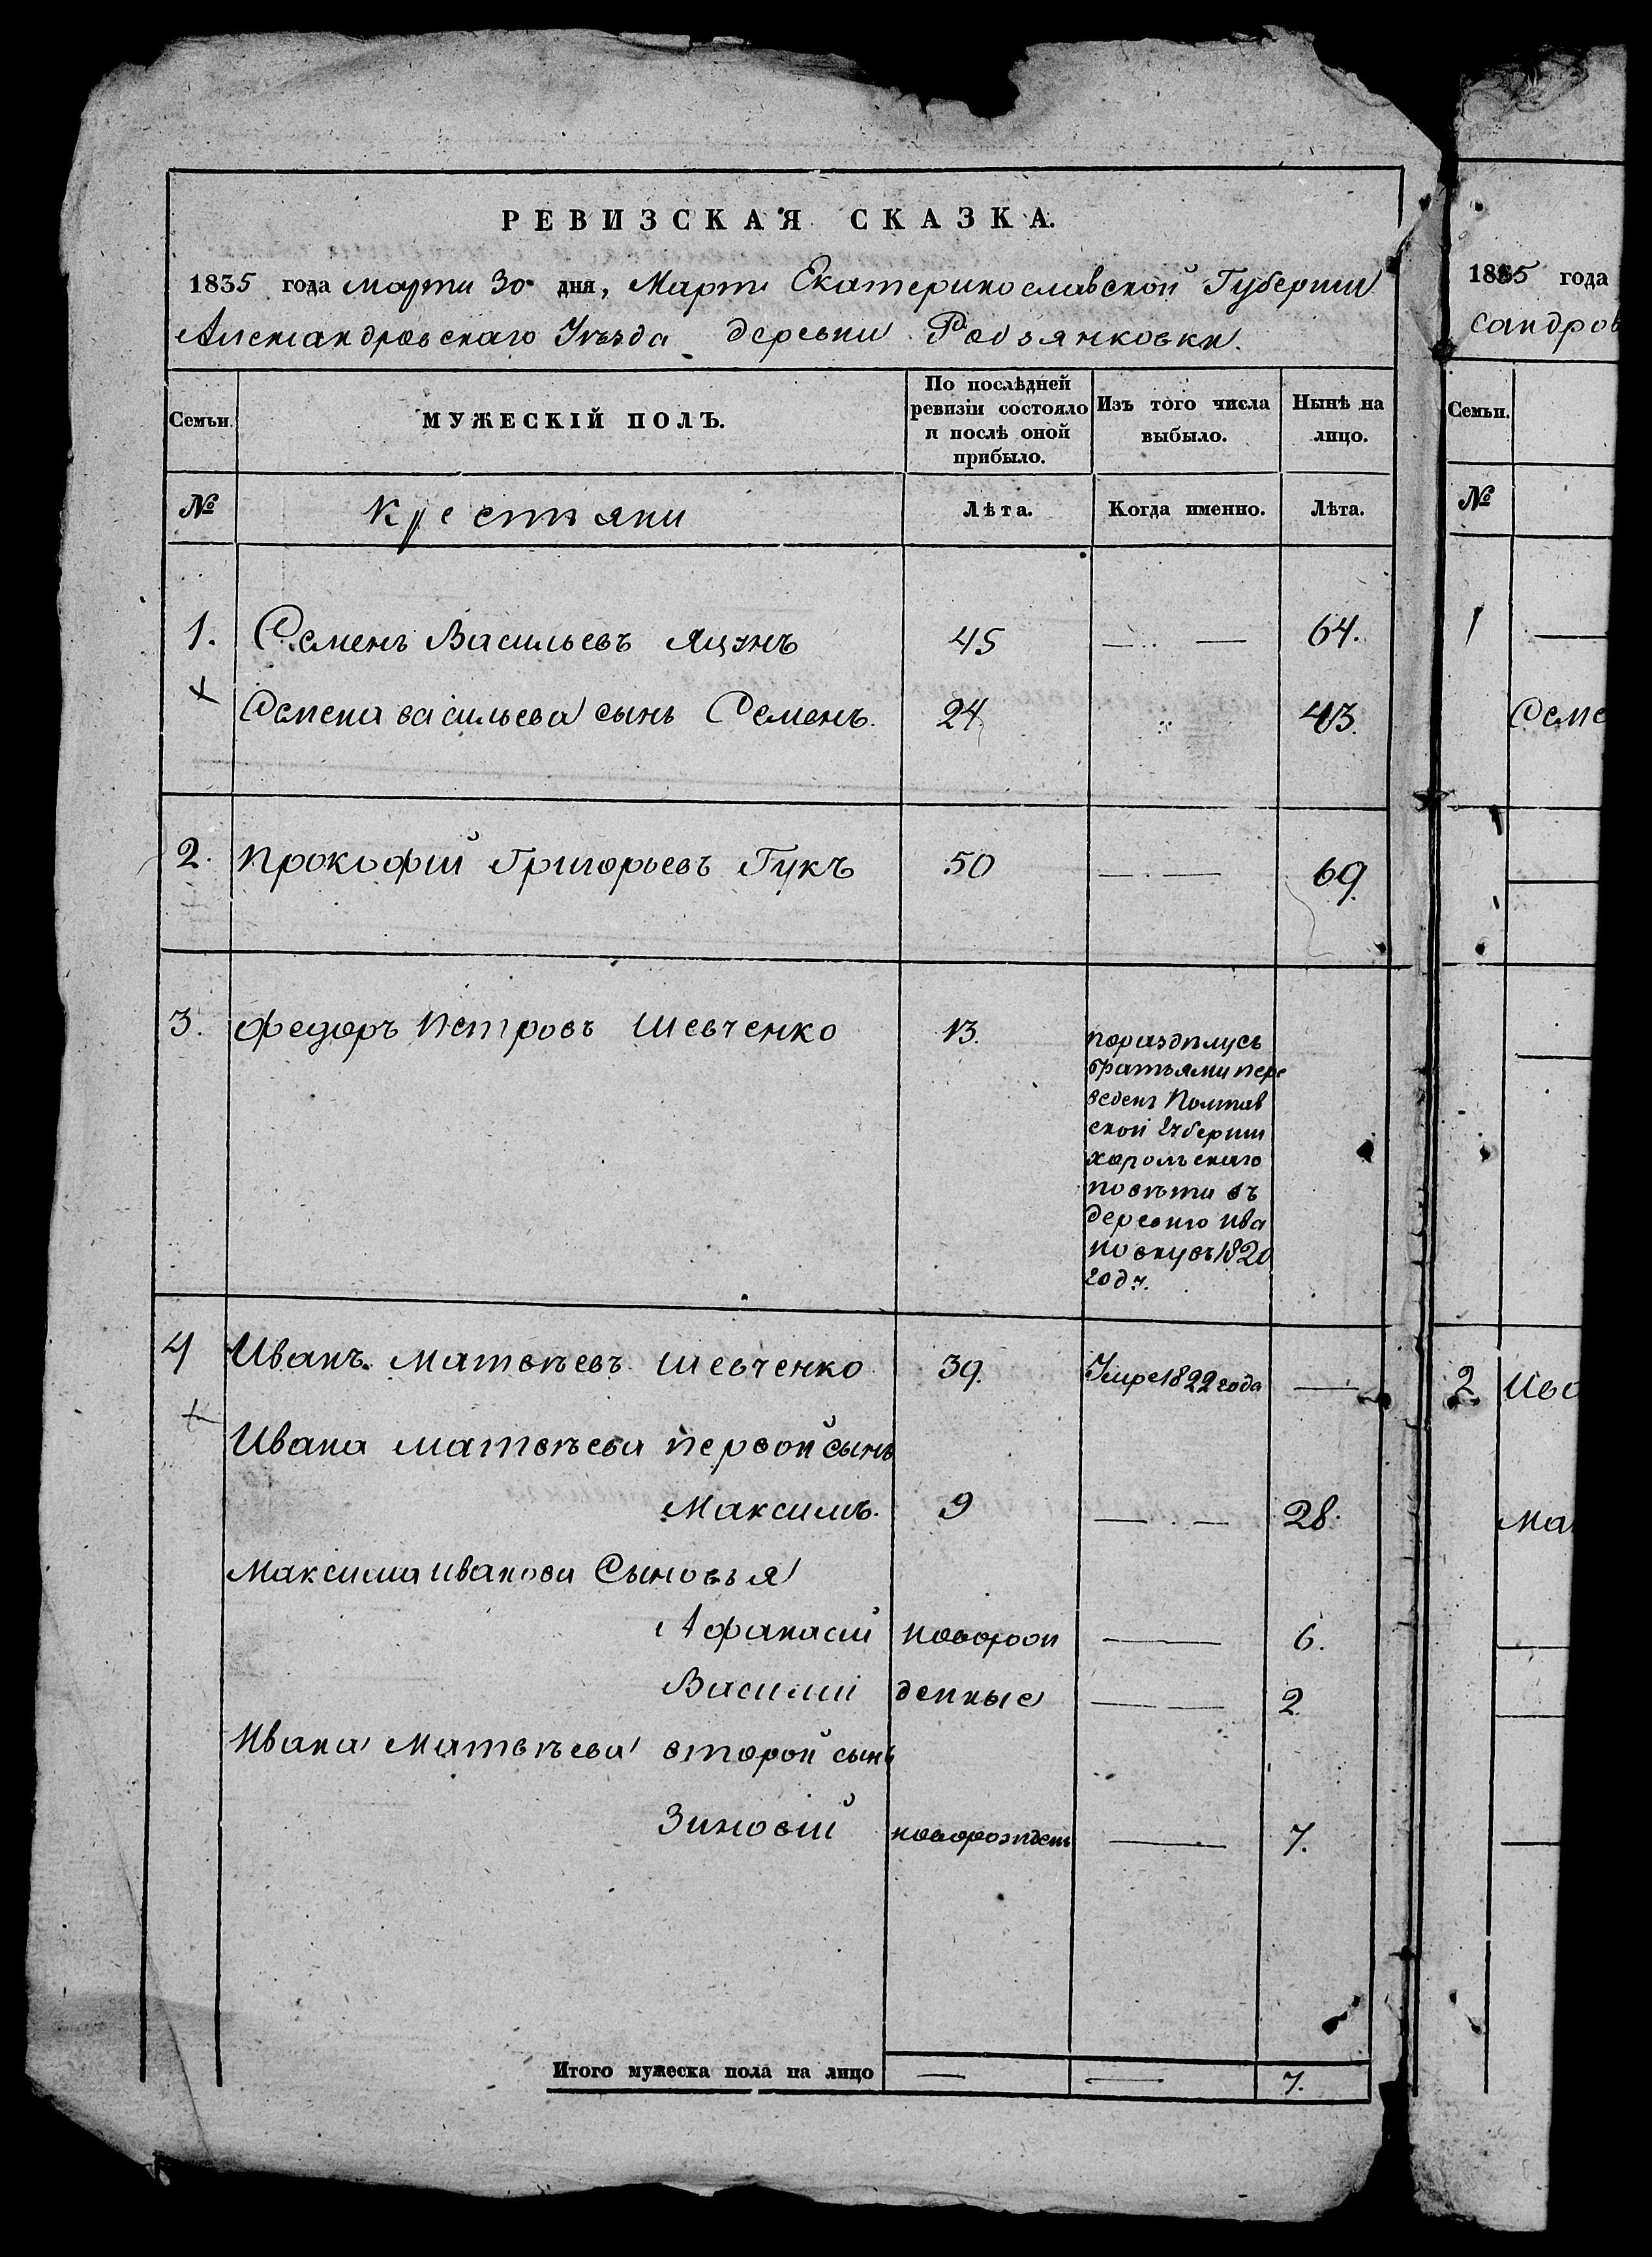 РЕВИЗСКАЯ СКАЗКА.
1835 года Марта 30 дня, Марта Екатеринославской Губернии
Александровскаго Уѣзда деревни
Семьи. МУЖЕСКІЙ ПОЛЪ. По послѣдней ревизіи состояло и послѣ оной прибыло. Изъ того числа выбыло. Нынѣ на лицо.
№ Крестьяни Лѣта. Когда именно. Лѣта.
1. Семенъ Васильевъ Яценъ 45 — — 64.
Семена васильева сынъ Семенъ. 24 43.
2. Прокофій Григорьевъ Гукъ 50 — — 69.
3. Федоръ Петровъ Шевченко 13.
поразделусь
братьями пере
веденъ Полтав
ской губернии
хорольскаго
повѣта въ
деревню ива
новку въ 1820
году.
4 Иванъ Матвѣевъ Шевченко 39. Умре 1822 года —
Ивана Матвѣева первой сынъ
Максимъ. 9 — — 28.
Максима иванова Сыновья
Афанасій новорож — 6.
Василий денные — 2.
Ивана Матвѣева второй сынъ
Зиновій новорожден — 7.
Итого мужеска пола на лицо — — 7.
1835 года
сандров
Семьи.
№
1 —
Семе
2 Ива
Ма